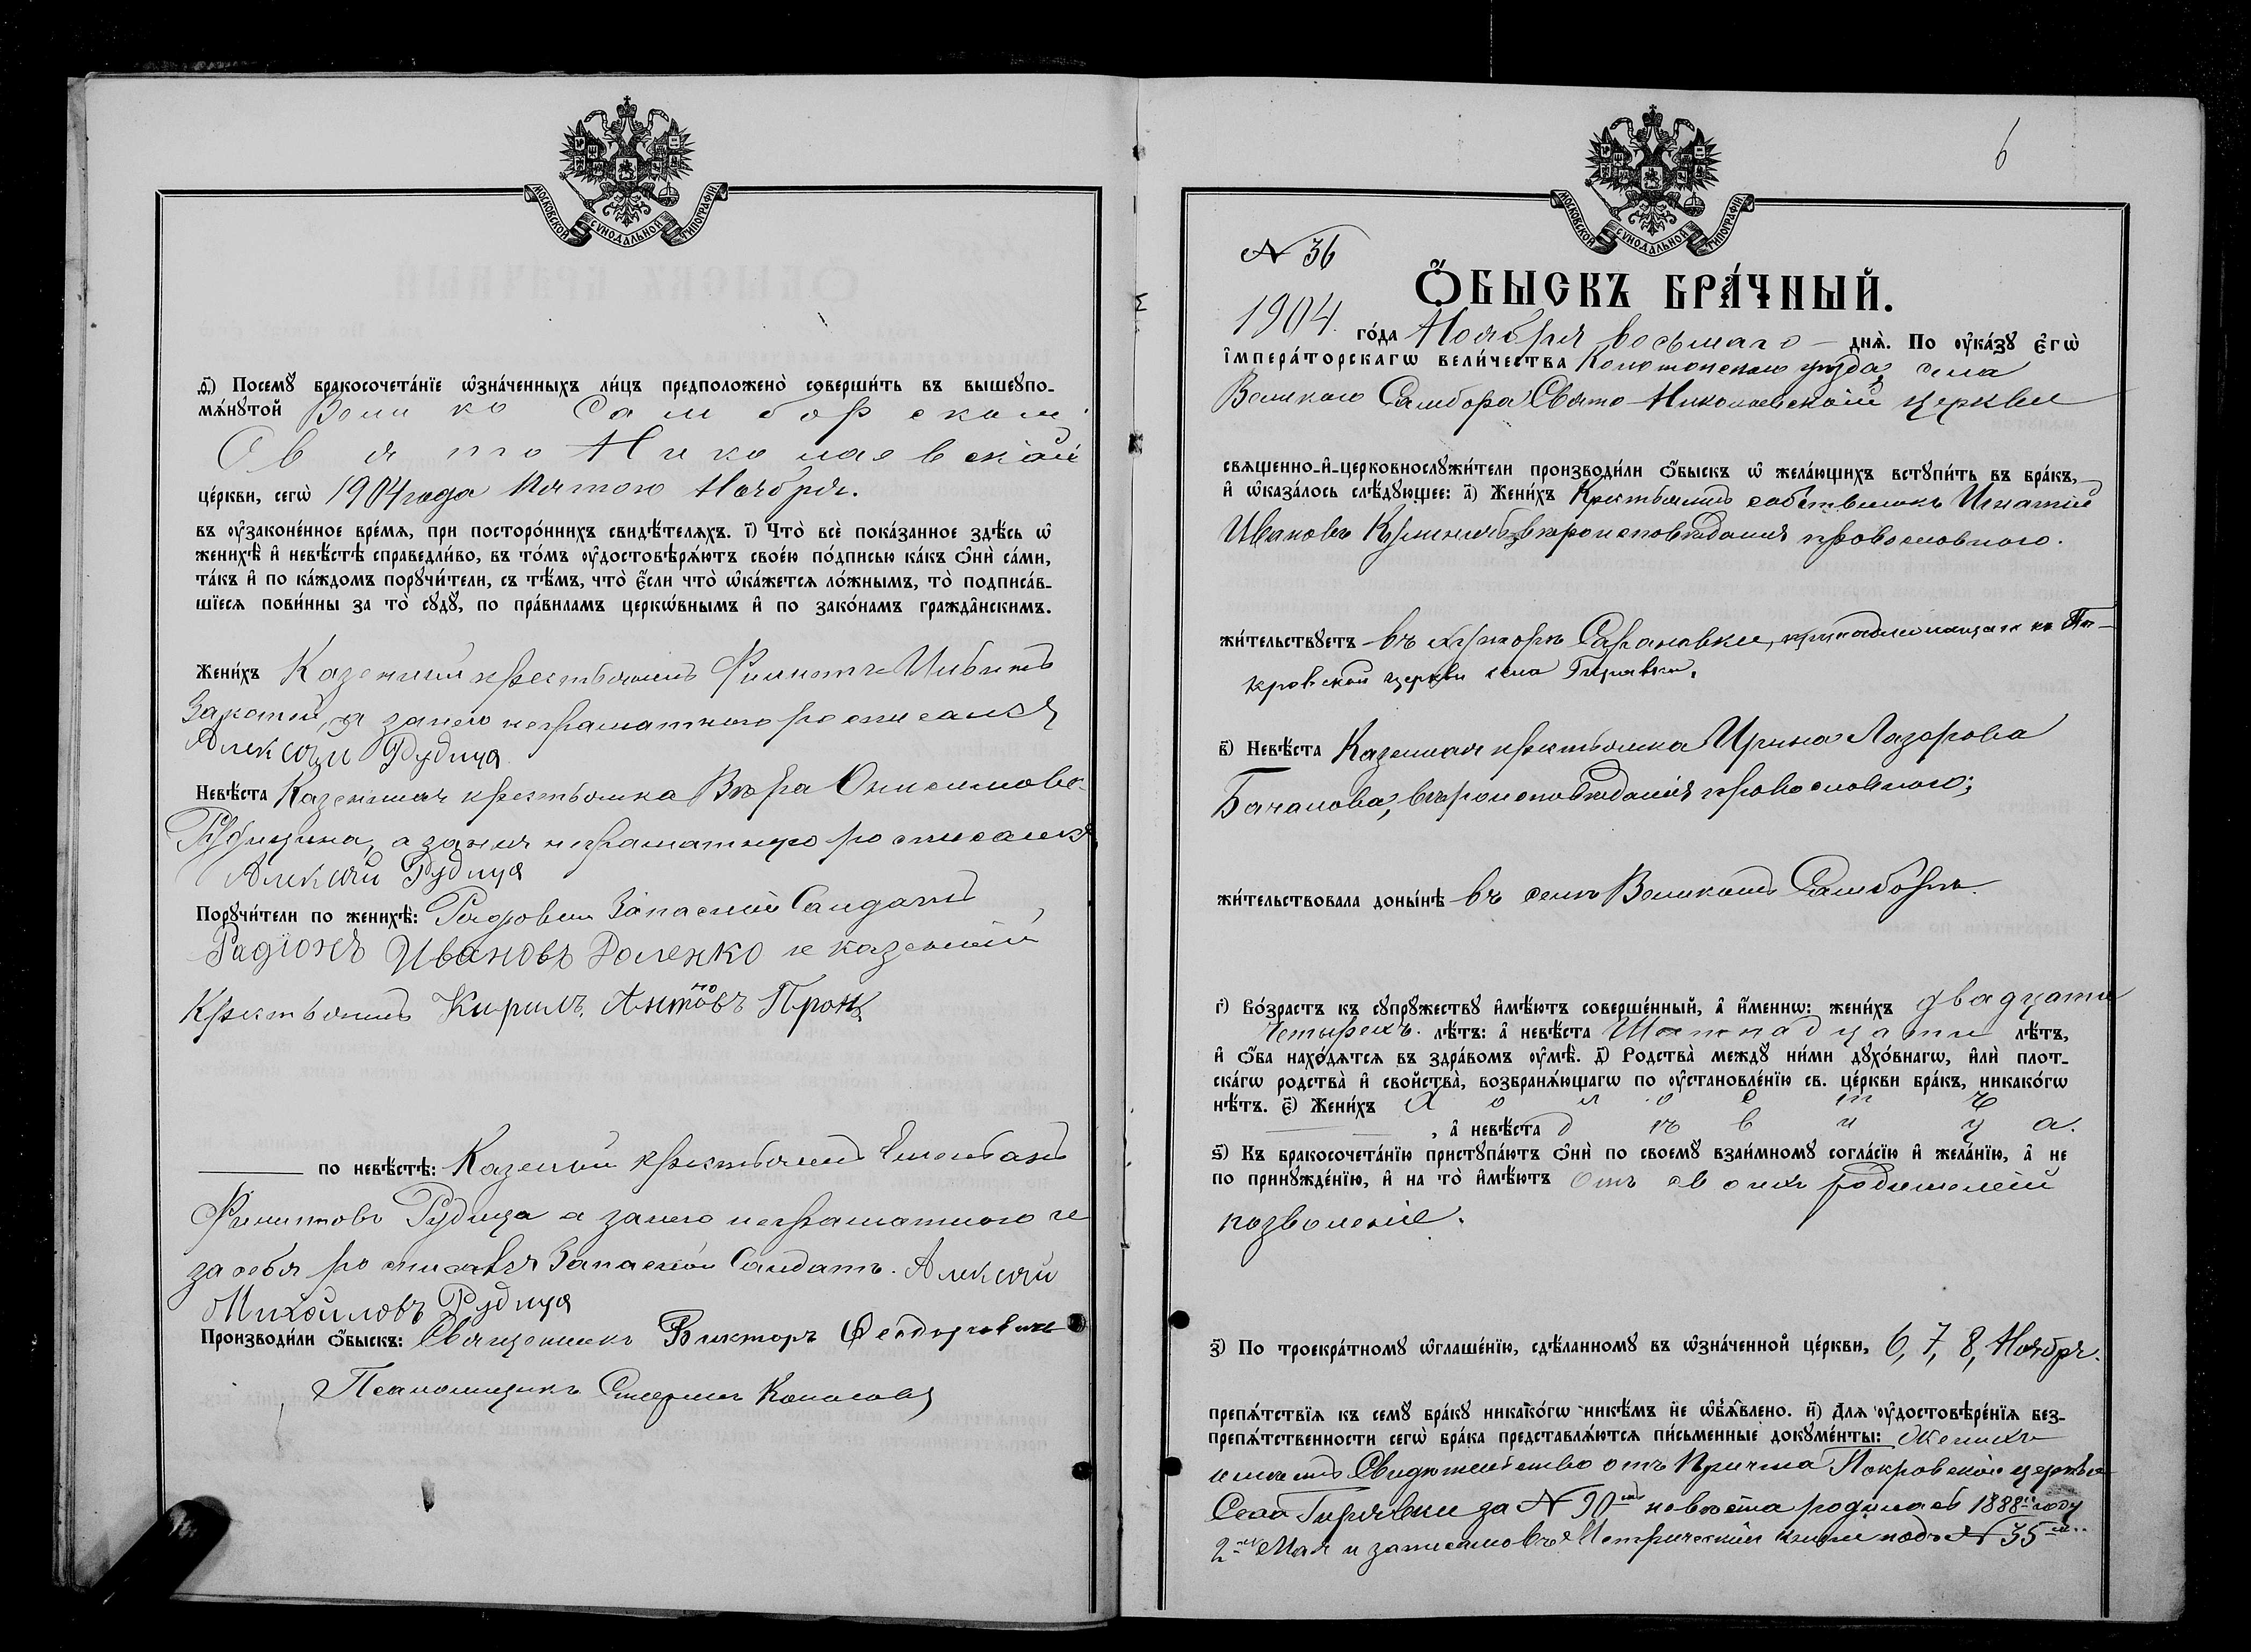 МОСКОВСКОЙ СѴНОДАЛЬНОЙ ТИПОГРАФІИ
д҃) Посемꙋ̀ бракосочета́нїе ѡ҆зна́ченныхъ ли́цъ предположено̀ соверши́ть въ вышеꙋпо-
мѧ́нꙋтой Велико Самборской
Свято Николаевской
це́ркви, сегѡ̀ 1904 года Пятого Ноября.
въ ᲂу҆законе́нное вре́мѧ, при посторо́ннихъ свидѣ́телѧхъ. і҃) Что̀ всѐ пока́занное здѣ́сь ѡ҆
женихѣ̀ и҆ невѣ́стѣ справедли́во, въ то́мъ ᲂу҆достовѣрѧ́ютъ свое́ю по́дписью ка́къ ѻ҆нѝ са́ми,
та́къ и҆ по ка́ждомъ порꙋчи́тели, съ тѣ́мъ, что̀ є҆́сли что̀ ѡ҆ка́жетсѧ ло́жнымъ, то̀ подписа́в-
шїесѧ пови́нны за то̀ сꙋдꙋ̀, по пра́виламъ церкѡ́внымъ и҆ по зако́намъ гражда̑нскимъ.
Жени́хъ Казенный крестьянинъ Филиппъ
а за него неграматного росписался
Алексѣй Рудица
Невѣ́ста Казенная крестьянка Вѣра Онисимова
Рудицина, а за нея неграматную росписался
Алексѣй Рудица
Порꙋчи́тели по женихѣ̀: Рядовой Запасной Салдатъ
Радіонъ Ивановъ Доленко и казенный
Крестьянинъ Кирилъ Антоновъ Проня
по невѣ́стѣ: Казенный крестьянинъ
Филиповъ Рудица а за него неграматного и
за себя росписався Запасной Салдатъ. Алексѣй
Михайловъ Рудица
Производи́ли ѻ҆́быскъ: Священникъ Викторъ Феодоровичъ
Псаломщикъ
6
МОСКОВСКОЙ СѴНОДАЛЬНОЙ ТИПОГРАФІИ
N 36
Ѻ҆́БЫСКЪ БРА́ЧНЫЙ.
1904. го́да Ноября восьмаго — днѧ̀. По ᲂу҆ка́зꙋ є҆гѡ̀
і҆мпера́торскагѡ вели́чества Конотопскаго уѣзда, села
Великого Самбора Свято-Николаевской церкви
свѧщенно-и҆-церковнослꙋжи́тели производи́ли ѻ҆́быскъ ѡ҆ жела́ющихъ встꙋпи́ть въ бра́къ,
и҆ ѡ҆каза́лось слѣ́дꙋющее: а҃) Жени́хъ Крестьянинъ собственикъ Игнатій
Ивановъ вѣроисповѣданія провославного.
жи́тельствꙋетъ въ хуторѣ Сарановки, принадлежащаго къ По-
кровской церкви села Гирявки.
в҃) Невѣ́ста Казенная крестьянка Ирина Лазорова
Бачанова, вѣроисповѣданія провославного;
жи́тельствовала доны́нѣ въ селѣ Великомъ Самборѣ.
г҃) Во́зрастъ къ сꙋпрꙋ́жествꙋ и҆мѣ́ютъ соверше́нный, а҆ и҆́меннѡ: жени́хъ двадцати
четырехъ. лѣ́тъ: а҆ невѣ́ста Шестнадцати лѣ́тъ,
и҆ ѻ҆́ба нахо́дѧтсѧ въ здра́вомъ ᲂу҆мѣ̀. д҃) Родства̀ междꙋ̀ ни́ми дꙋхо́внагѡ, и҆лѝ плот-
ска́гѡ родства̀ и҆ свойства̀, возбранѧ́ющагѡ по ᲂу҆становле́нїю св. це́ркви бра́къ, никако́гѡ
нѣ́тъ. є҃) Жени́хъ холостъ
, а҆ невѣ́ста дѣвица.
ѕ҃) Къ бракосочета́нїю пристꙋпа́ютъ ѻ҆нѝ по своемꙋ̀ взаи́мномꙋ согла́сїю и҆ жела́нїю, а҆ не
по принꙋжде́нїю, и҆ на то̀ и҆мѣ́ютъ Отъ своихъ родителей
позволеніе.
з҃) По троекра́тномꙋ ѡ҆глаше́нїю, сдѣ́ланномꙋ въ ѡ҆зна́ченной це́ркви, 6, 7, 8, Ноября.
препѧ́тствїѧ къ семꙋ̀ бра́кꙋ никако́гѡ никѣ́мъ не ѡ҆б̾ѧ́влено. и҃) Длѧ ᲂу҆достовѣре́нїѧ без-
препѧ́тственности сегѡ̀ бра́ка представлѧ́ютсѧ пи́сьменные докꙋме́нты: Женихъ
имѣетъ Свидѣтельство отъ Причта Покровской церкви
Села Гирявки за N 90 невѣста родилась 1888 году
2 Мая и записано въ Метрической книги подъ N 35